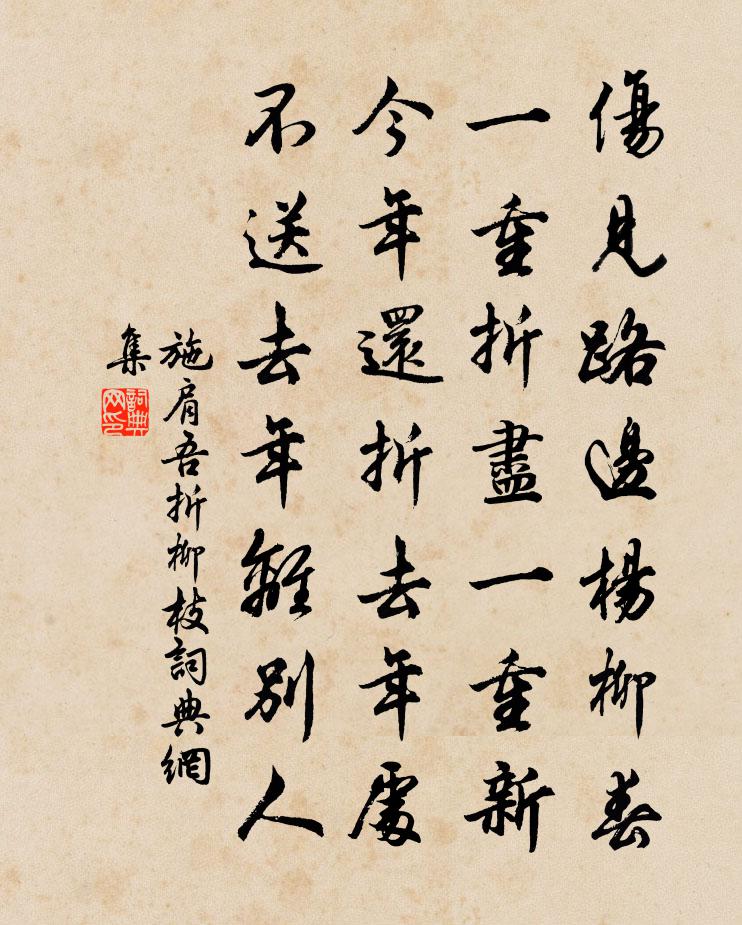 傷見路邊楊柳春
一重折盡一重新
今年還折去年處
不送去年離別人
施肩吾折柳枝詞典網
集
詞典
网印